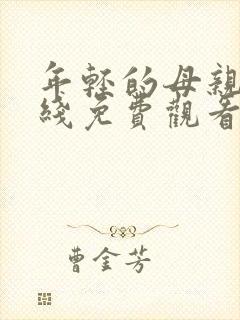 年轻的母親
綫免費觀看
曹金芳